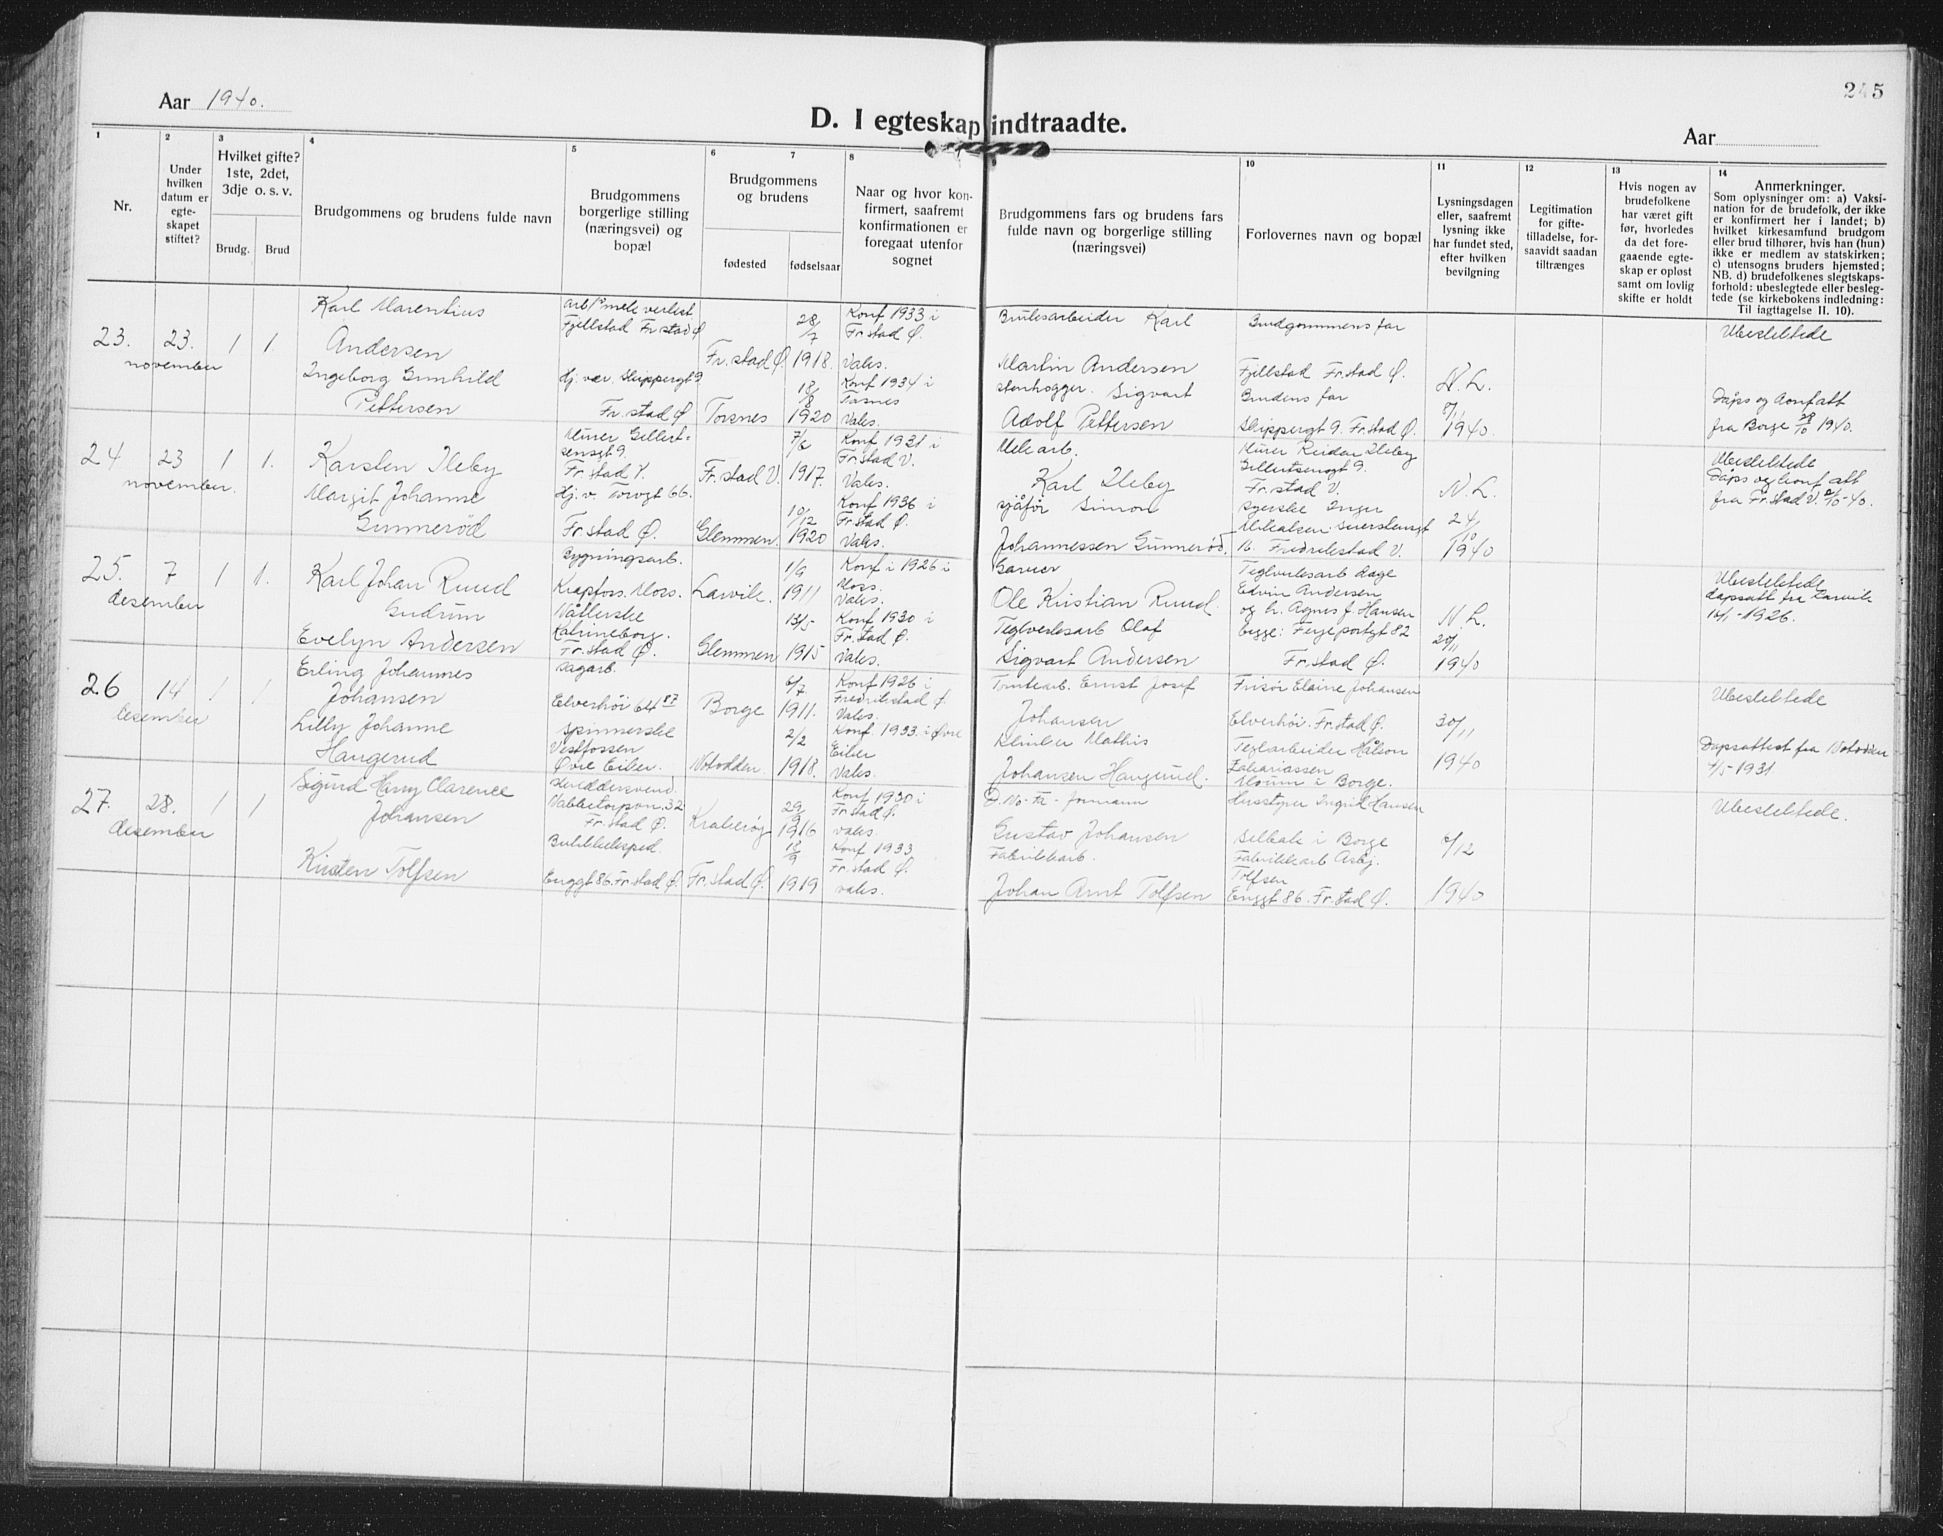 245
Aar 1940.
D. I egteskap indtraadte.
Aar
1
Nr.
2
Under
hvilken
datum er
egte-
skapet
stiftet?
3
Hvilket gifte?
1ste, 2det,
3dje o. s. v.
Brudg.
Brud
4
Brudgommens og brudens fulde navn
5
Brudgommens
borgerlige stilling
(næringsvei) og
bopæl
6
7
Brudgommens
og brudens
fødested
fødselsaar
8
Naar og hvor kon-
firmert, saafremt
konfirmationen er
foregaat utenfor
sognet
9
Brudgommens fars og brudens fars
fulde navn og borgerlige stilling
(næringsvei)
10
Forlovernes navn og bopæl
11
Lysningsdagen
eller, saafremt
lysning ikke
har fundet sted,
efter hvilken
bevilgning
12
Legitimation
for gifte-
tilladelse, for-
saavidt saadan
tiltrænges
13
Hvis nogen av
brudefolkene
har været gift
før, hvorledes
da det fore-
gaaende egte-
skap er opløst
samt om lovlig
skifte er holdt
14
Anmerkninger.
Som oplysninger om: a) Vaksi-
nation for de brudefolk, der ikke
er konfirmert her i landet; b)
hvilket kirkesamfund brudgom
eller brud tilhører, hvis han (hun)
ikke er medlem av statskirken;
c) utensogns bruders hjemsted;
NB. d) brudefolkenes slegtskaps-
forhold: ubeslegtede eller besleg-
tede (se kirkebokens indledning:
Til iagttagelse II. 10).
23.
23.
november
1
1.
Karl Marentius
Andersen
Ingeborg Gunhild
Pettersen
Arb. mek verkst
Fjellstad Fr stad Ø
Hj. vær. Skippergt 9
Fr. stad Ø
Fr. stad Ø
Torsnes
28/7
1918.
18/8
1920
Konf 1933 i
Fr. stad Ø.
Vaks.
Konf 1934 i
Torsnes
Vaks.
Bruksarbeider Karl
Martin Andersen
stenhogger. Sigvart
Adolf Pettersen
Brudgommens far
Fjellstad Fr. stad Ø.
Brudens far
Skippergt 9. Fr. stad Ø.
N. L.
8/11
1940.
Ubeslektede
Dåps og konf att
fra Borge 28/10 1940.
24
23
november.
1
1.
Karsten Ileby
Margit Johanne
Gunnerød
Murer Gellert-
sensgt 9.
Fr. stad V.
Hj. v. Torvgt 66.
Fr. stad Ø.
Fr. stad V.
Glemmen.
7/6
1917.
10/12
1920
Konf 1931 i
Fr. stad V.
Vaks.
Konf 1936 i
Fr. stad Ø.
Vaks.
Mek arb.
Karl Ileby
sjåfør Simon
Johannessen Gunnerød.
Murer Reidar Ileby
Gellertsensgt 9.
Fr. stad V.
syerske Inger
Fredrikstad V.
N. L.
24/10
1940
Ubeslektede
Dåps og konf att
fra Fr. stad V. - 40.
25.
7
desember
1
1.
Karl Johan Ruud
Gudrun
Evelyn Andersen
Bygningsarb.
Krapfoss. Moss.
Katrineborg.
Fr. stad Ø.
Larvik.
Glemmen
1/9
1911
13/5
1915
Konf i 1926 i
Moss.
Vaks.
Konf 1930 i
Fr. stad Ø.
Vaks.
Garver
Ole Kristian Ruud.
Teglverksarb Olaf
Sigvart Andersen
Teglverksarb Aage
Edvin Andersen
og h. Agnes f. Hansen
begge: Ferjeportgt 82
Fr. stad Ø.
N. L.
20/11
1940
Ubeslektede
dåpsatt fra Larvik
- 1926.
26
14
desember
1
1
Erling Johannes
Johansen
Lilly Johanne
Haugerud
sagarb.
Elverhøi
spinnerske
Vestfossen
Øvre Eiker.
Borge
Notodden
6/7
1911.
2/2
1918.
Konf 1926 i
Fredrikstad Ø.
Vaks.
Konf. 1933. i Øvre
Eiker
Vaks.
Tomtearb. Ernst Josef
Johansen
Klinker Mathis
Johansen Haugerud.
Frisør Elaine Johansen
Elverhøi. Fr. stad Ø.
Teglarbeider Håkon
Zakariassen
Moum i Borge.
30/11
1940
Ubeslektede
Dåpsattest fra Notodden
4/5 - 1931
27.
28.
desember
1
1
Sigurd Harry Clarence
Johansen
Kirsten Tolfsen
skreddersvend.
Vabbetorpsv. 32
Fr. stad Ø.
Butikkeksped.
Enggt 86. Fr. stad Ø.
Kråkerøy
Fr. stad Ø.
29/9
1916
18/9
1919
Konf 1930 i
Fr. stad Ø.
vaks.
Konf 1933
Fr. stad Ø.
vaks.
formann
Gustav Johansen
Fabrikkarb.
Johan Arnt Tolfsen
Husstyrer Ingrid Hansen
Selbak i Borge
Fabrikkarb Asbj.
Tolfsen
Enggt 86. Fr. stad Ø.
6/12
1940
Ubeslektede.